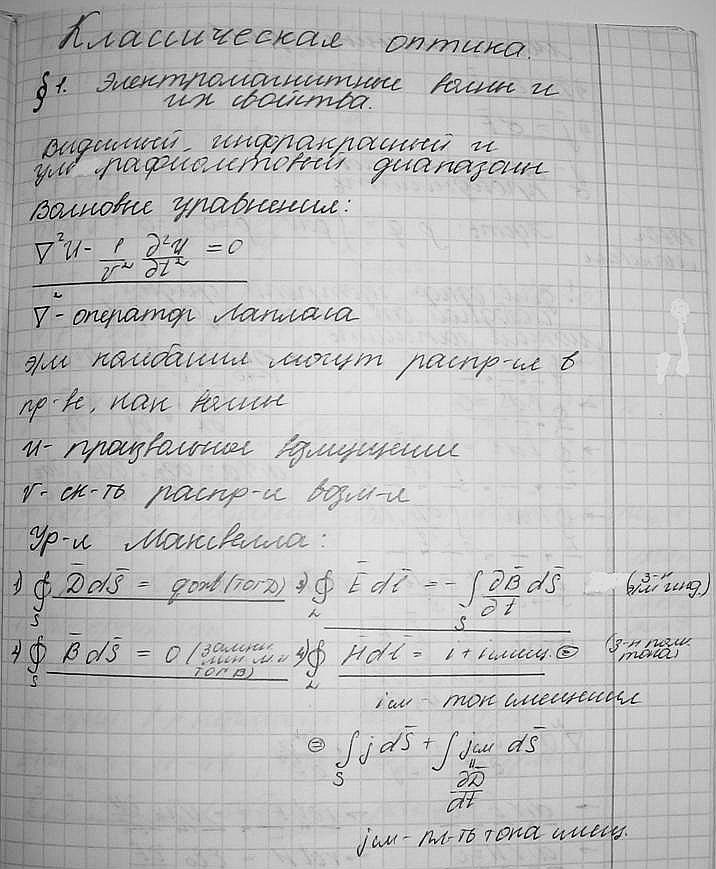 Классическая оптика.
§ 1. Электромагнитные волны и
их свойства.
Видимый, инфракрасный и
ультрафиолетовый диапазоны
Волновые уравнения:
∇²u - 1/v² ∂²u/∂t² = 0
∇² - оператор Лапласа
э/м колебания могут распр-ся в
пр-ве, как волны
u - произвольное возмущение
v - ск-ть распр-я возм-я
Ур-я Максвелла:
1) ∮_S D̄ dS̄ = qохв (ТОГ D) 3) ∮_L Ē dl̄ = - ∫_S ∂B̄/∂t dS̄ (з-н э/м инд.)
2) ∮_S B̄ dS̄ = 0 (замкн. лин м.п ТОГ В) 4) ∮_L H̄ dl̄ = i + i смещ. ⊜ (з-н полн. тока)
iсм - ток смещения
⊜ ∫_S j dS̄ + ∫ jсм dS̄
"
∂D̄/dt
jсм - пл-ть тока смещ.